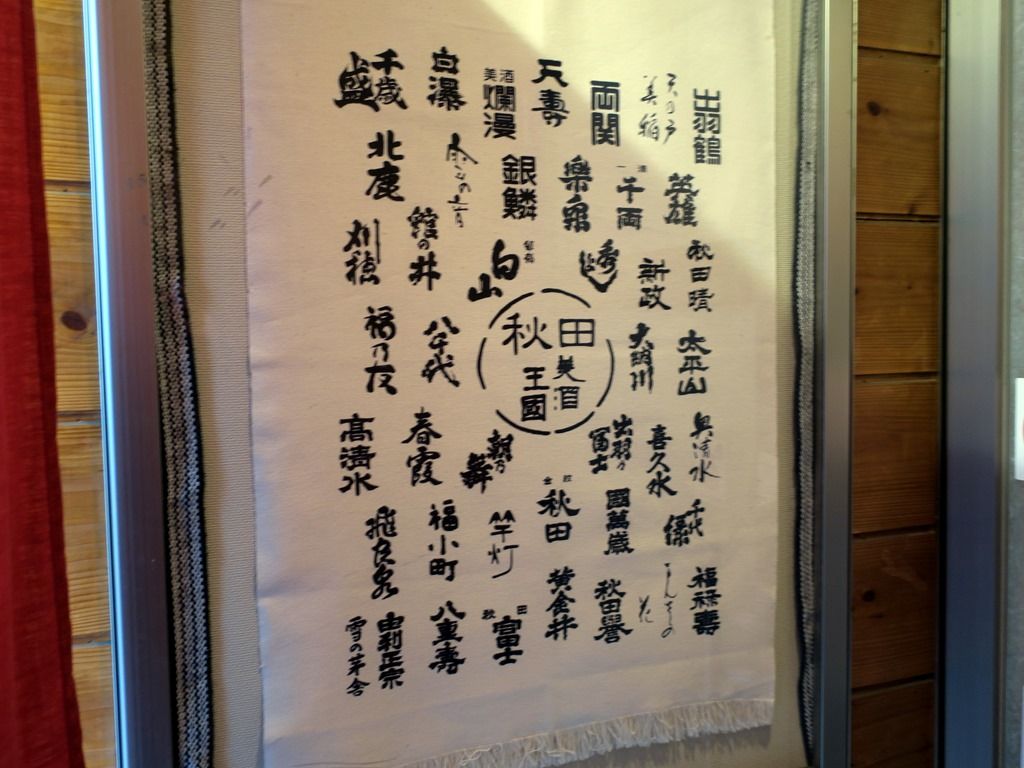 出羽鶴
英雄
秋田晴
太平山
奥清水
千代緑
福禄寿
天の戸
美稲
一千両
新政
大納川
喜久水
まんさくの
花
両関
秀よし
出羽の冨士
國萬歳
秋田誉
天寿
樂泉
金政
秋田
黄金井
秋田
美酒
王國
美酒
爛漫
銀鱗
白山
朝乃舞
竿灯
秋田
富士
白瀑
雪の音
霞の井
八千代
春霞
福小町
八重壽
千歳盛
北鹿
刈穂
福乃友
高清水
飛良泉
由利正宗
雪の茅舎